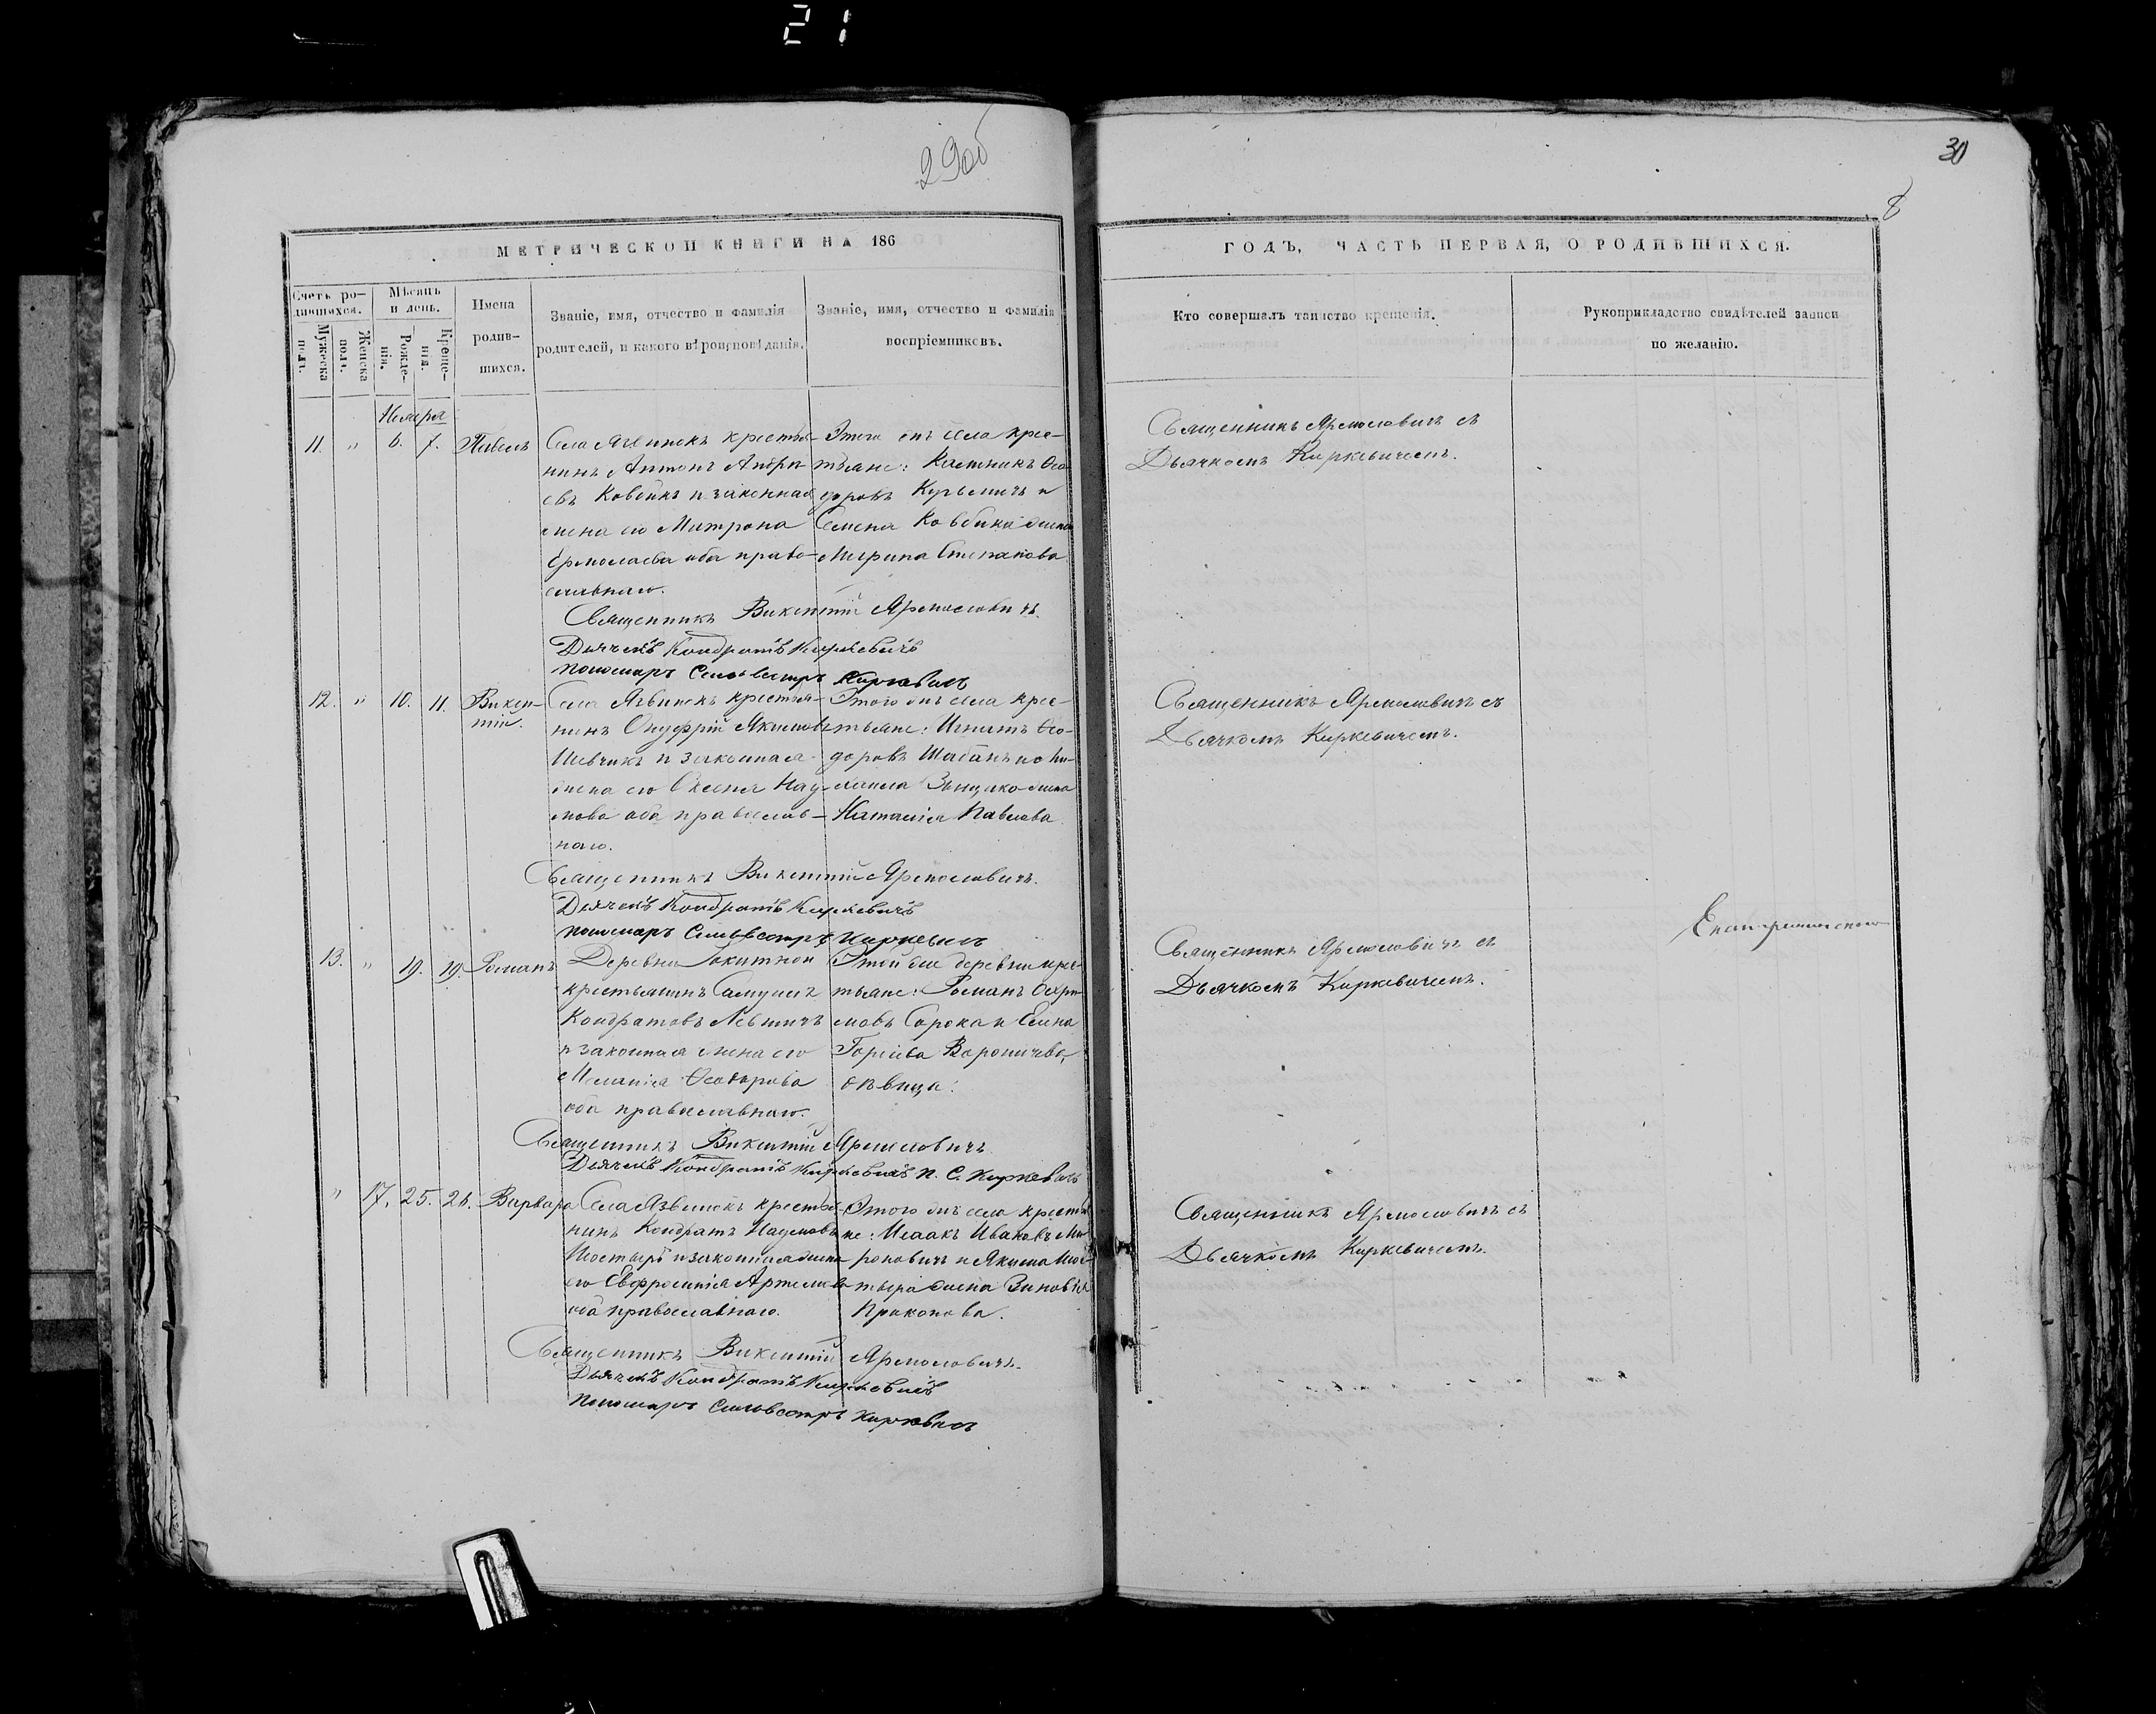 21
29об
30
8
МЕТРИЧЕСКОЙ КНИГИ НА 186
ГОДЪ, ЧАСТЬ ПЕРВАЯ, О РОДИВШИХСЯ.
Счетъ ро-
дившихся.
Мужеска
пола.
Женска
пола.
Мѣсяцъ
и день.
Рожде-
нія.
Креще-
нія.
Имена
родив-
шихся.
Званіе, имя, отчество и фамилія
родителей, и какого вѣроисповѣданія.
Званіе, имя, отчество и фамилія
воспріемниковъ.
Кто совершалъ таинство крещенія.
Рукоприкладство свидѣтелей записи
по желанію.
Ноября
11. " 6. 7. Павелъ
Села Язвинокъ крестья-
нинъ Антонъ Андре-
евъ и законная
жена его Матрона
Ермолаева оба право-
славнаго.
Этого жъ села крес-
тьяне: Ѳео-
доровъ и
Семена жена
Марина Степанова
Священникъ Ярмоловичъ съ
Дьячкомъ Киркевичемъ.
Священникъ Викентій Ярмоловичъ.
Дьячекъ Кондратъ Киркевичъ
Пономарь Сильвестръ Киркевичъ
12. " 10. 11. Викен-
тій.
Села Язвинокъ крестья-
нинъ Онуфрій Якимовъ
Шевчикъ и законная
жена его Ксенія Нау-
мова оба православ-
наго.
Этого жъ села крес-
тьяне: Игнатъ Ѳео-
доровъ и Ми-
хаила жена
Наталія Павлова
Священникъ Ярмоловичъ съ
Дьячкомъ Киркевичемъ.
Священникъ Викентій Ярмоловичъ.
Дьячекъ Кондратъ Киркевичъ
Пономарь Сильвестръ Киркевичъ
13. " 19. 19. Романъ
Деревни Локитной
крестьянинъ Самуилъ
Кондратовъ Левшичъ
и законная жена его
Меланія Ѳеодорова
оба православнаго.
Этой же деревни крес-
тьяне: Романъ
Сорока и Елена
дѣвица.
Священникъ Ярмоловичъ съ
Дьячкомъ Киркевичемъ.
Священникъ Викентій Ярмоловичъ
Дьячекъ Кондратъ Киркевичъ П. С. Киркевичъ
" 17. 25. 26. Варвара
Села Язвинокъ крестья-
нинъ Кондратъ Наумовъ
и законная жена
его Евфросинія Артемова
оба православнаго.
Этого жъ села крестья-
не: Исаакъ Ивановъ Ми-
роновичъ и Якима
жена Зиновія
Прокопова.
Священникъ Ярмоловичъ съ
Дьячкомъ Киркевичемъ.
Священникъ Викентій Ярмоловичъ.
Дьячекъ Кондратъ Киркевичъ
Пономарь Сильвестръ Киркевичъ